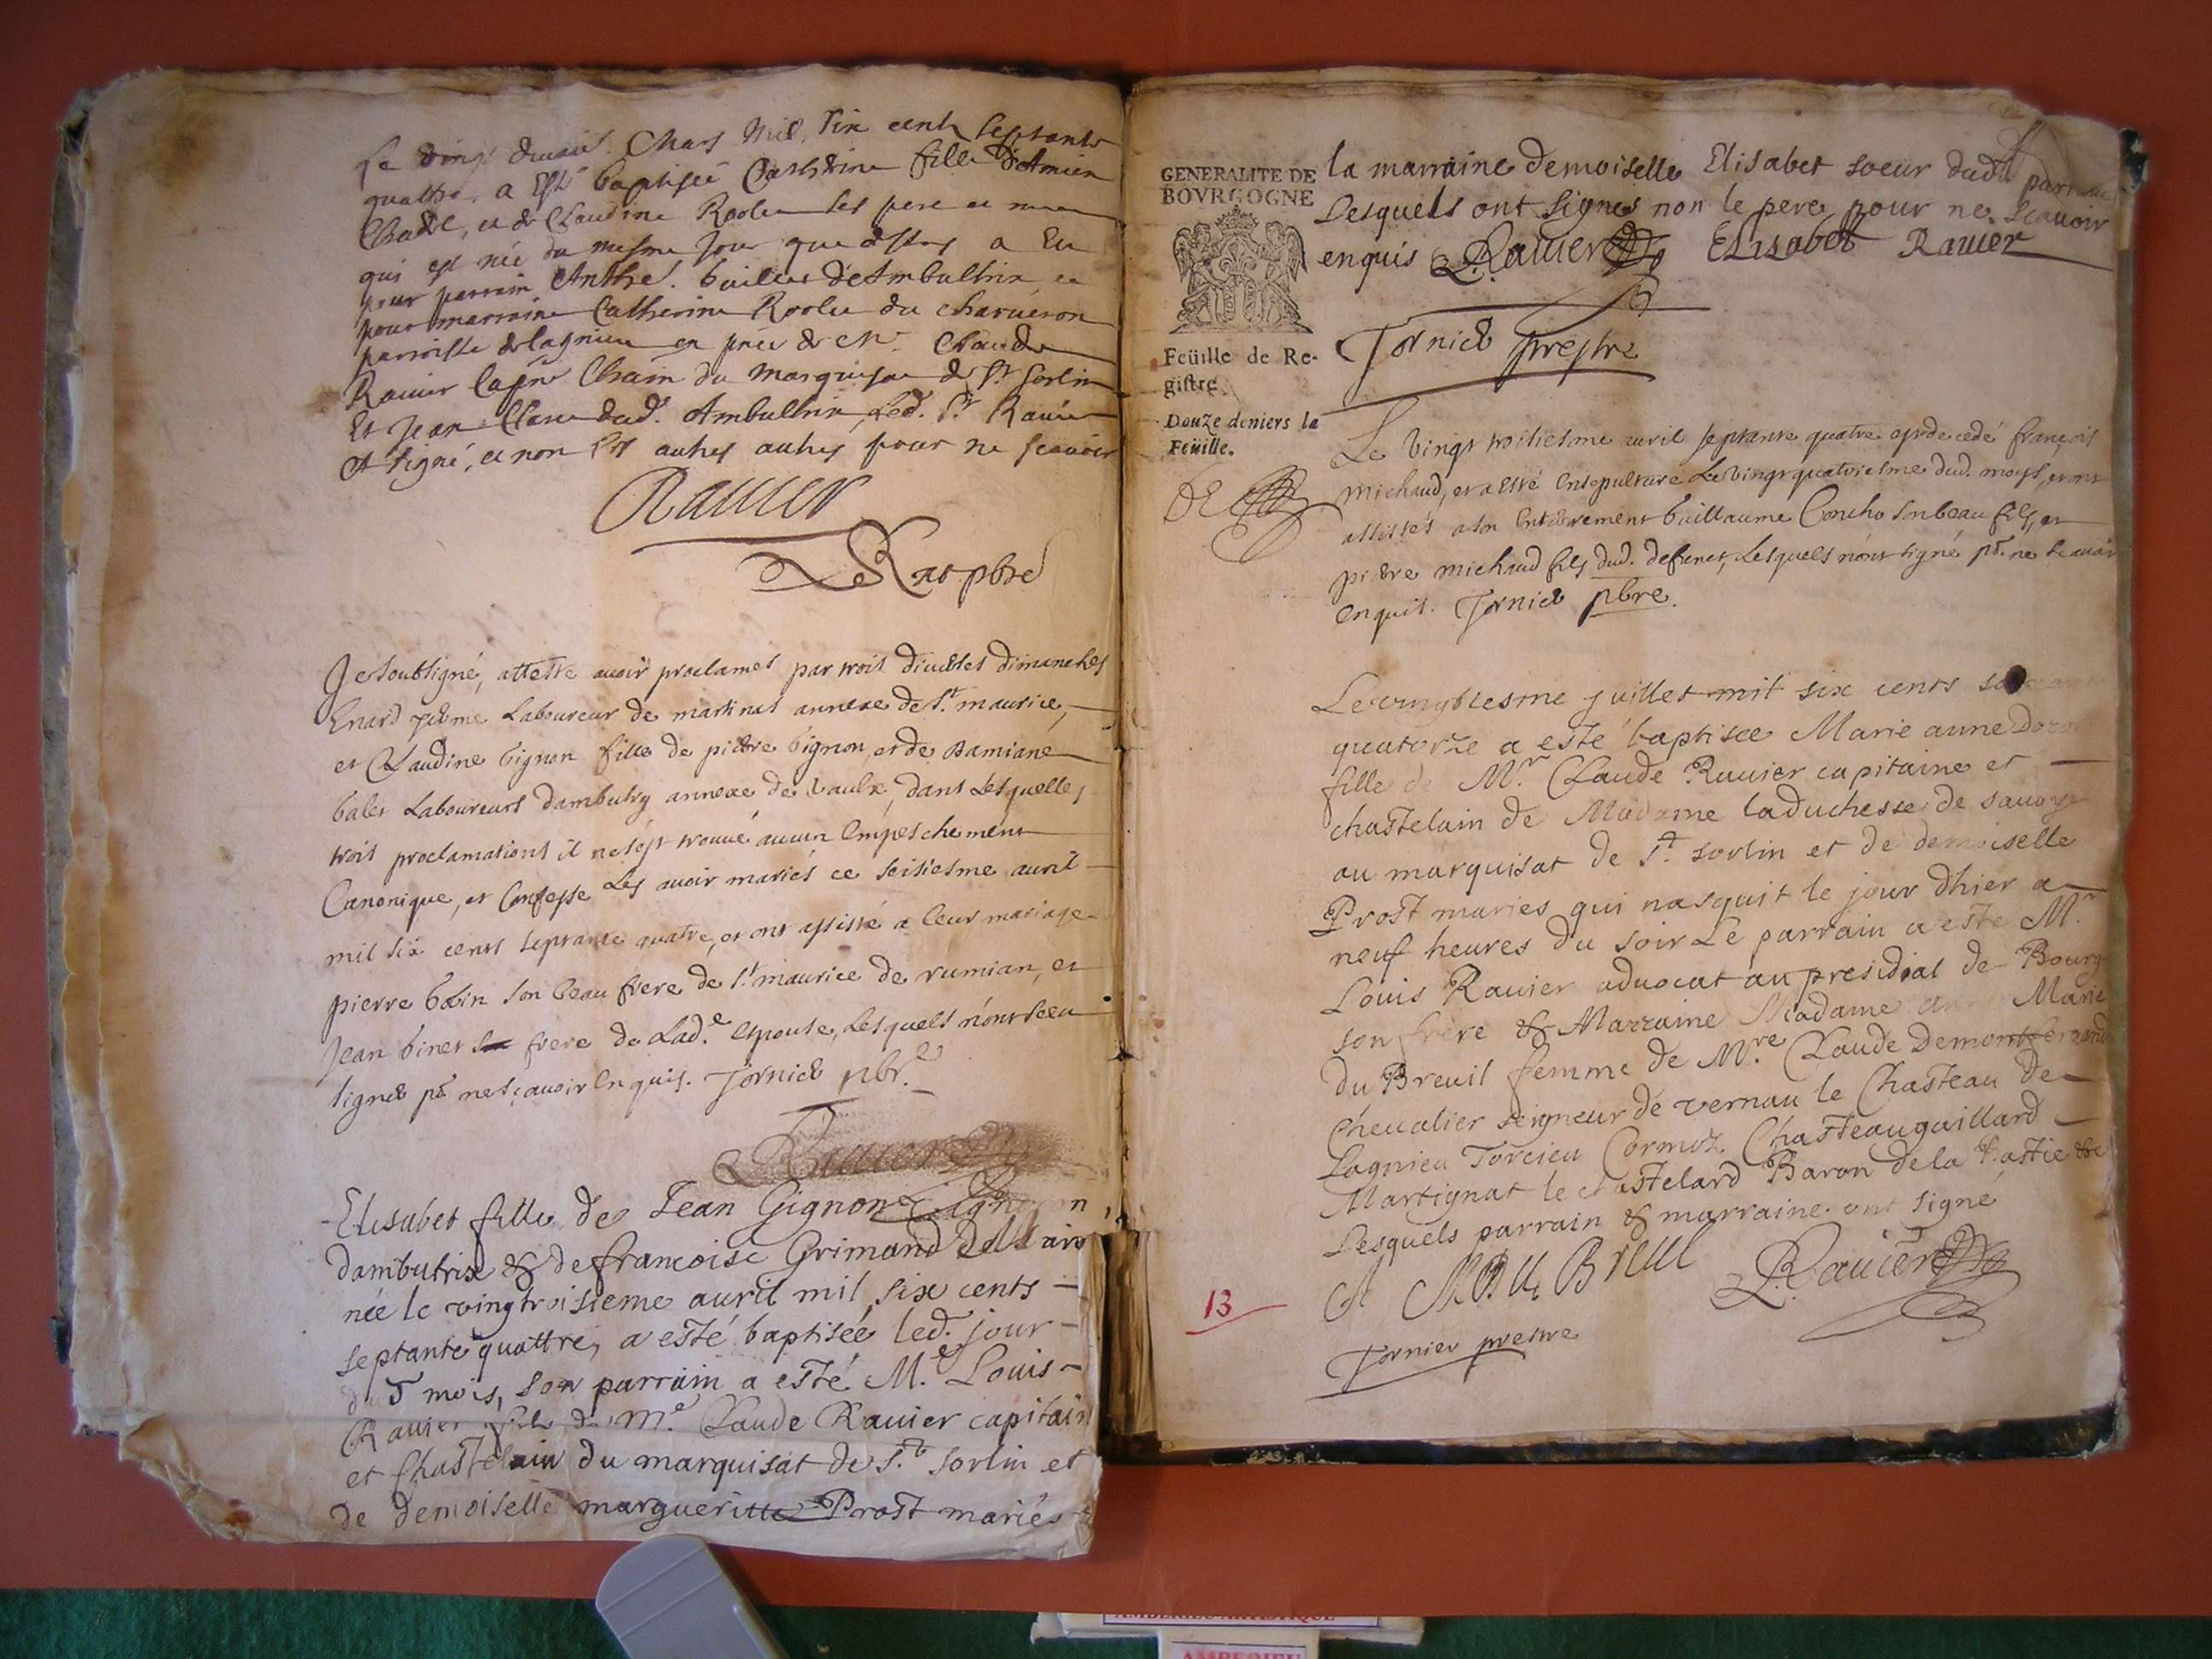 mars mil six cents septante
quattre, a esté baptisée Catherine fille d'Amien
et de Claudine ses pere et
qui est née du mesme jour que dessus a Eu
pour parrain Anthe. d'Ambultrix, et
pour marraine Catherine du Charueron
parroisse de lagnieu en pnce de Mr. Claude
Rauier Capne du Marquisat de St. Sorlin
Et Jean dud. Ambultrix, Led. Sr Rauier
A signé, et non les autres autres pour ne scauoir
Rauier
pbre
Je soubsigné, atteste auoir proclamés par trois diuerses dimanches
Enard Laboureur de martinat annexe de St. maurice,
et Claudine Gignon fille de pierre Gignon, et de Damiane
balet Laboureurs dambutry annexe de Vaulx, dans Lesquelles
trois proclamations il ne s'est trouué aucun Empeschement
Canonique, et Confesse Les auoir mariés ce seisiesme auril
mil six cents septante quatre, et ont assisté a leur mariage
pierre son beau frere de St maurice de rumian, et
Jean binet frere de Lad.e espouse, Lesquels n'ont sceu
signer pr ne sçauoir Enquis. Tornier pbr.
Rauier
Elisabet fille de Jean Gignon
dambutrix & de francoise Grimand
née le vingtroisieme auril mil six cents
septante quattre, a esté baptisée led. jour
dud mois, son parrain a esté M.e Louis
Rauier fils de M.e Claude Rauier capitain
et Chastelain du marquisat de St. Sorlin et
de demoiselle margueritte Prost mariés
la marraine demoiselle Elisabet soeur dud parrain
Lesquels ont signés non le pere pour ne scauoir
enquis Rauier Elisabet Rauier
Tornier prestre
GENERALITE DE
BOVRGOGNE
Feüille de Re-
gistre.
Douze deniers la
Feüille.
Le vingt troisiesme auril septante quatre est decedé françois
michaud, et a esté Ensepulturé Le vingt quatriesme dud. moys, et ont
assistés a son Enterrement Guillaume Concho son beau fils, et
pierre michaud fils dud. defunct, Lesquels n'ont signé pr. ne scauoir
Enquis. Tornier pbre.
juillet mil six cents
quatorze a esté baptisée Marie anne
fille de Mr. Claude Rauier capitaine et
chastelain de Madame la duchesse de sauoye
au marquisat de St. sorlin et de demoiselle
Prost maries qui nasquit le jour dhier a
neuf heures du soir Le parrain a este Mr
Louis Rauier aduocat au presidial de Bourg
son frere & Marraine Madame Marie
du Breuil femme de Mre. Claude Demontferrand
Cheualier seigneur de vernau le Chasteau de
Lagnieu Torcieu Cormoz Chasteaugaillard
Martignat le chastelard Baron de la Bastie &c
Lesquels parrain & marraine ont signé
A M Du Breul Rauier
13
Tornier prestre
AMBERIEU ARTISTIQUE
AMBERIEU